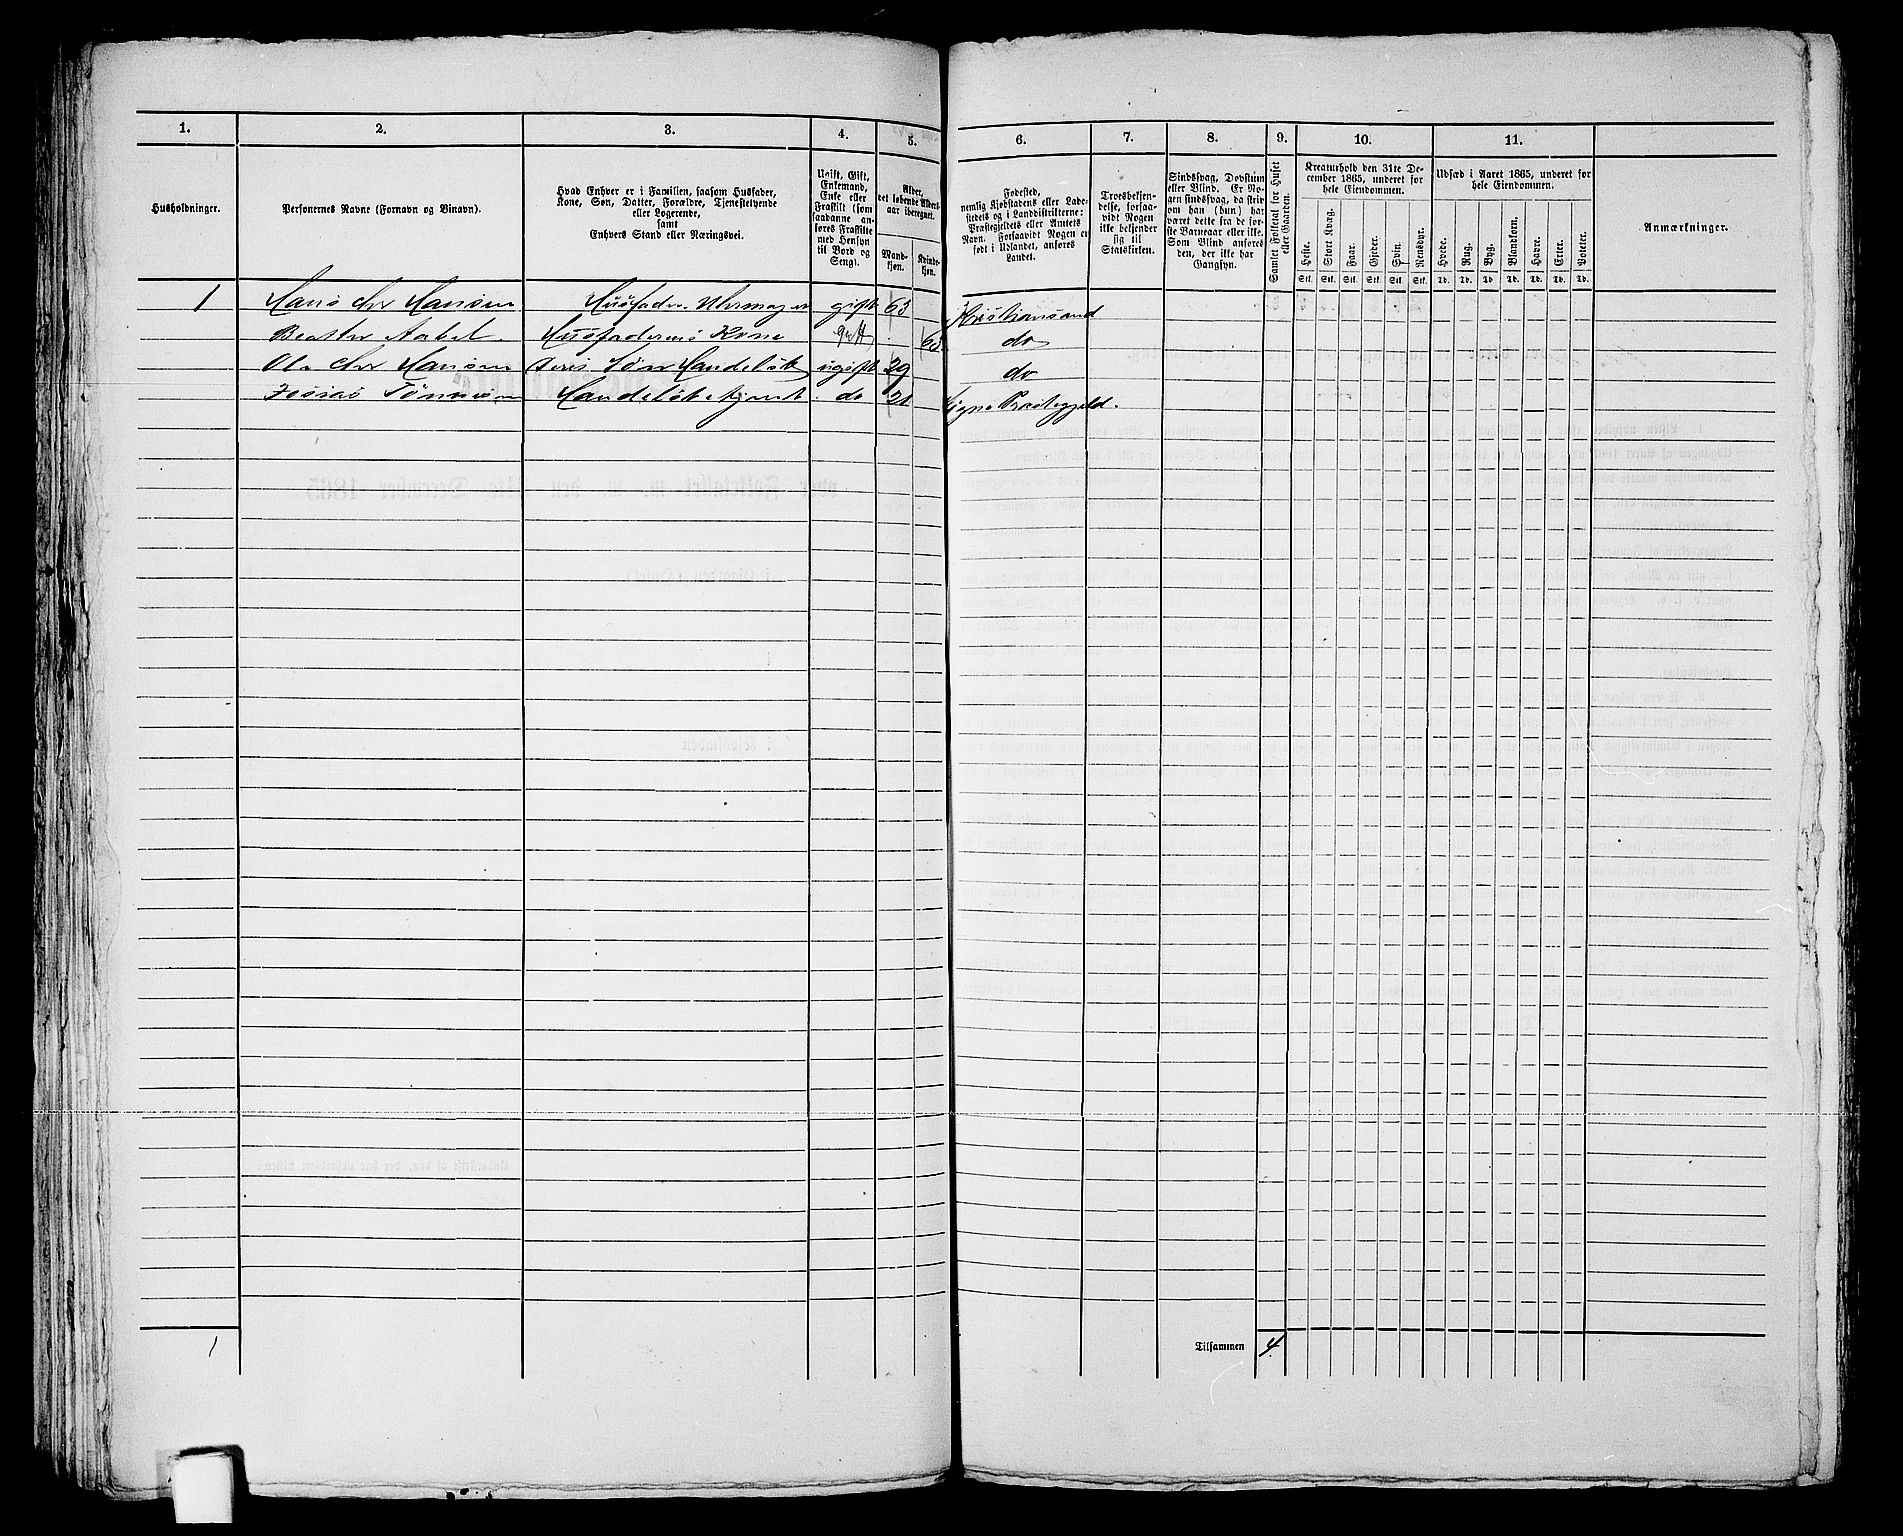 1. 2. 3. 4. 5. 6. 7. 8. 9. 10. 11.
Husholdninger.
Personernes Navne (Fornavn og Binavn).
Hvad Enhver er i Familien, saasom Husfader,
Kone, Søn, Datter, Forældre, Tjenestetyende
eller Logerende,
samt
Enhvers Stand eller Næringsvei.
Ugift, Gift,
Enkemand,
Enke eller
Fraskilt (som
saadanne an-
føres Fraskilte
med Hensyn
til Bord og
Seng).
Alder,
det løbende Alders-
aar iberegnet.
Mand-
kjøn.
Kvinde-
kjøn.
Fødested,
nemlig Kjøbstadens eller Lade-
stedets og i Landdistrikterne:
Præstegjeldets eller Amtets
Navn. Forsaavidt Nogen er
født i Udlandet, anføres
Landet.
Troesbekjen-
delse, forsaa-
vidt Nogen
ikke bekjender
sig til
Statskirken.
Sindssvag, Døvstum
eller Blind. Er No-
gen sindssvag, da skriv
om han (hun) har
været dette fra de før-
ste Barneaar eller ikke.
Som Blind anføres
den, der ikke har
Gangsyn.
Samlet Folketal for Huset
eller Gaarden.
Kreaturhold den 31te De-
cember 1865, underet for
hele Eiendommen.
Heste. Stort Kvæg. Faar. Gjeder. Svin. Rensdyr.
Stk. Stk. Stk. Stk. Stk. Stk.
Udsæd i Aaret 1865, underet for
hele Eiendommen.
Hvede. Rug. Byg. Blandkorn. Havre. Erter. Poteter.
Td. Td. Td. Td. Td. Td. Td.
Anmærkninger.
1 Hans Chr Hansen Husfader Uhrmager gift 63 Kristiansand
Aabel Husfaderens Kone gift do
Ole Chr Hansen Deres Søn ugift 29 do
do 21 Præstegjeld.
1 Tilsammen 4